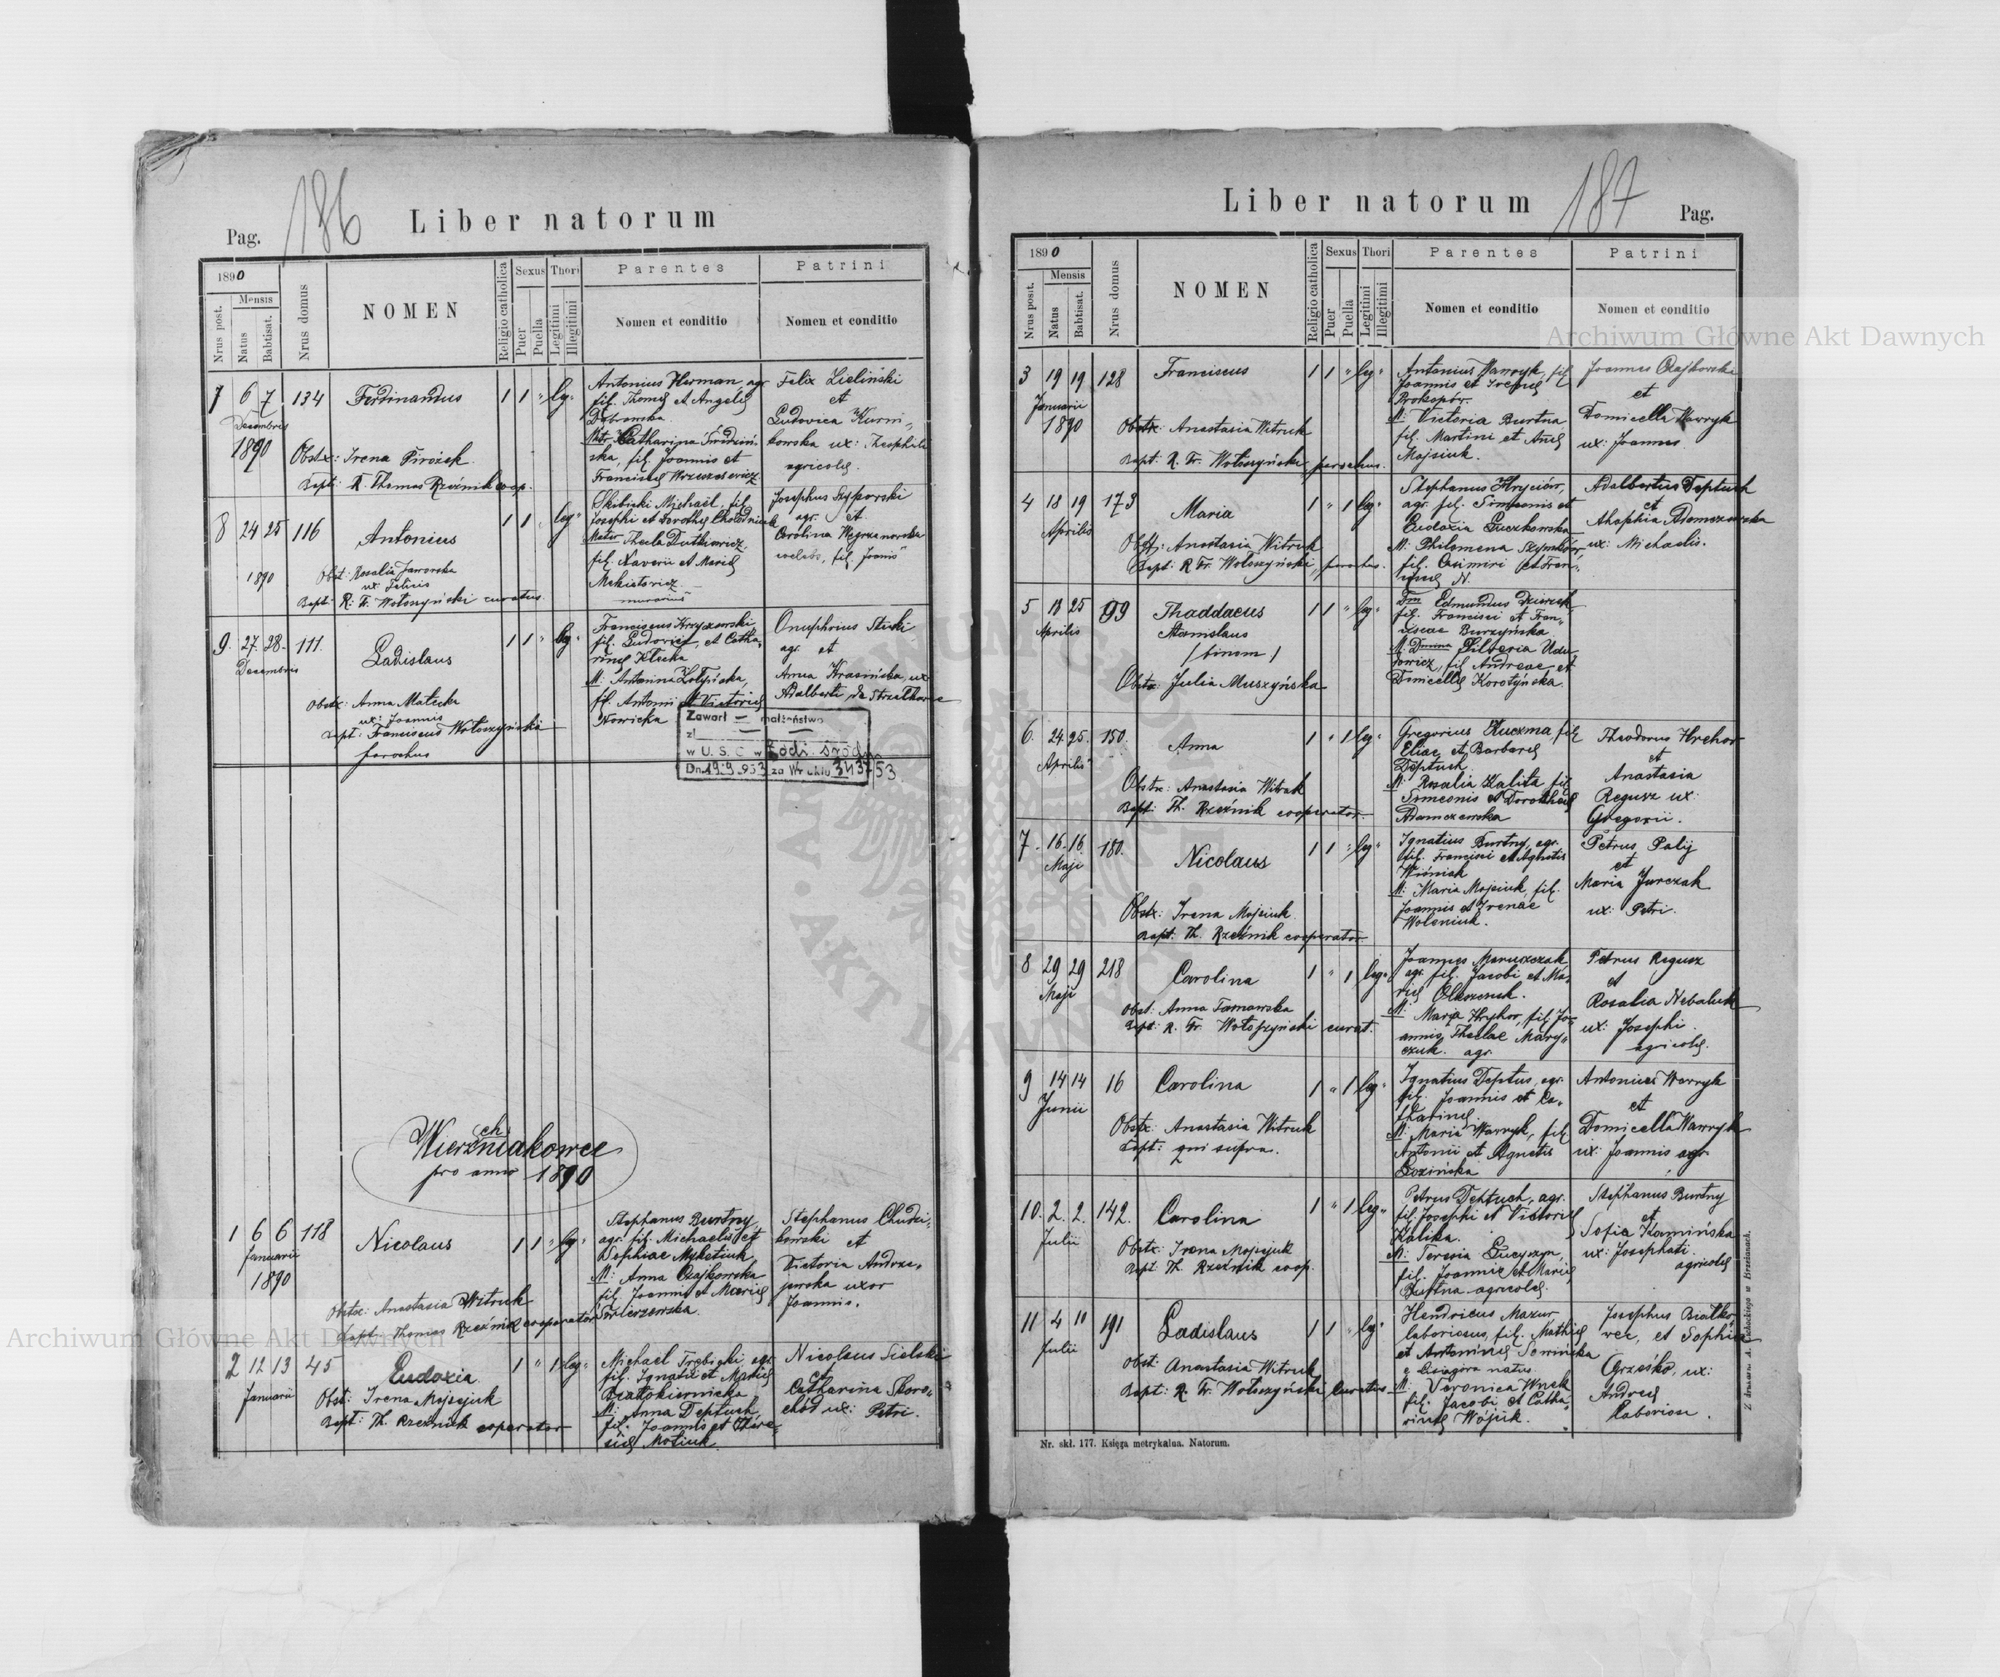 186
Pag.
Liber natorum
1890
Nrus post.
Mensis
Natus
Babtisat.
Nrus domus
NOMEN
Religio catholica
Sexus
Puer
Puella
Thori
Legitimi
Illegitimi
Parentes
Nomen et conditio
Patrini
Nomen et conditio
7 6 7 134 Ferdinandus 1 1 " leg.
Decembris
1890
Obstx: Irena Pirożek
Bapt: R. Thomas Rzeźnik coop.
Antonius Herman, agr.
fil. Thomae et Angelae
Dąbrowska
Mtr. Catharina
ska, fil. Joannis et
Franciscae
Felix Zieliński
et
Ludovica Kurni-
kowska ux: Theophili
agricolae.
8 24 25 116 Antonius 1 1 " leg.
1890
Obst: Rosalia Jaworska
ux: Felicis
Bapt: R. Fr. Wołoszyński curatus
Skibicki Michaël, fil.
Josephi et Dorotheae Chołodniuk
Mater Thecla Dutkiewicz
fil. Xaverii et Mariae
Mekietowicz
murarius
Josephus Szyporski
agr. et
Carolina Węgrzanowska
caelebs, fil. Joannis
9. 27. 28. 111. Ladislaus 1 1 " leg.
Decembris
Obstx: Anna Małecka
ux: Joannis
Bapt: Franciscus Wołoszyński
parochus
Franciscus Kryczewski
fil. Ludovici, et Catha-
rinae Klecka
M: Antonina Zołyńska,
fil. Antonii et Victoriae
Nowicka
Onuphrius Stecki
agr. et
Anna Krasińska, ux
Adalberti de Strzałkowce
Zawarł — małżeństwo
z/ —
w U. S. C. w Łodzi-Śródm.
Dn. 19.9.953 za Nr aktu 313/53
Wierzchniakowce
pro anno 1890
1 6 6 118 Nicolaus 1 1 " leg.
Januarii
1890
Obstx: Anastasia Witruk
Bapt: Thomas Rzeźnik cooperator
Stephanus Burtny
agr. fil. Michaelis et
Sophiae Myketiuk
M: Anna Czajkowska
fil. Joannis et Mariae
Świerzewska.
Stephanus Chudzi-
kowski et
Victoria Andrze-
jewska uxor
Joannis.
2 12 13 45 Eudoxia 1 " 1 leg.
Januarii
Obst: Irena Mojsejuk
Bapt: Th. Rzeźnik cooperator
Michaël Trębicki, agr.
fil. Ignatii et Mariae
Białokiernicka
M: Anna Deptuch,
fil. Joannis et There-
siae Motiuk.
Nicolaus Sielski
et
Catharina Skoro-
chód ux: Petri.
Liber natorum
187
Pag.
1890
Nrus post.
Mensis
Natus
Babtisat.
Nrus domus
NOMEN
Religio catholica
Sexus
Puer
Puella
Thori
Legitimi
Illegitimi
Parentes
Nomen et conditio
Patrini
Nomen et conditio
3 19 19 128 Franciscus 1 1 " leg.
Januarii
1890
Obstx: Anastasia Witruk
Bapt: R. Fr. Wołoszyński, parochus.
Antonius Wawryk, fil.
Joannis et Irenae
Prokopów.
M: Victoria Burtna,
fil. Martini et Annae
Mojsiuk.
Joannes Czajkowski
et
Domicella Wawryk
ux: Joannis
4 18 19 173 Maria 1 " 1 leg.
Aprilis
Obstx: Anastasia Witruk
Bapt: R. Fr. Wołoszyński, parochus.
Stephanus Hryciów,
agr. fil. Simeonis et
Eudoxia Luczkowska
M: Philomena
fil. Casimiri et Fran-
N.
Adalbertus Deptuch
et
Adamczewska
ux: Michaelis.
5 13 25 99 Thaddaeus 1 1 " leg.
Aprilis
Stanislaus
/ binom /
Obstx: Julia Muszyńska
Dm Edmundus
fil. Francisci et Fran-
ciscae Burzyńska
M: Domina
fil. Andreae et
Domicellae Korotyńska.
6. 24 25. 150. Anna 1 " 1 leg.
Aprilis
Obstx: Anastasia Witruk
Bapt: Th. Rzeźnik cooperator.
Gregorius Kuczma, fil.
Eliae et Barbarae
Deptuch.
M: Rosalia Kalita fil.
Simeonis et Dorotheae
Adamczewska
Theodorus Hrehor
et
Anastasia
Regusz ux:
Gregorii.
7. 16. 16. 180. Nicolaus 1 1 " leg.
Maji
Obstx: Irena Mojsiuk.
Bapt: Th. Rzeźnik cooperator
Ignatius Burtny, agr.
fil. Francisci et Agnetis
Wiśniak
M: Maria Mojsiuk, fil.
Joannis et Irenae
Woleniuk.
Petrus Palij
et
Maria Jurczak
ux: Petri.
8 29 29 218 Carolina 1 " 1 leg.
Maji
Obst: Anna Tarnawska
Bapt: R. Fr. Wołoszyński curat.
Joannes Maruszczak
agr. fil. Jacobi et Ma-
riae
M: Maria Hrehor, fil. Jo-
annis, Theclae Mary-
czuk. agr.
Petrus Regusz
et
Rosalia Nebaluk
ux: Josephi
agricolae.
9 14 14 16 Carolina 1 " 1 leg.
Junii
Obstx: Anastasia Witruk
Bapt: qui supra.
Ignatius Deptus, agr.
fil. Joannis et Ca-
tharinae
M: Maria Wawryk, fil.
Antonii et Agnetis
Łozińska
Antonius Wawryk
et
Domicella Wawryk
ux: Joannis agr.
10. 2. 2. 142. Carolina 1 " 1 leg.
Julii
Obstx: Irena Mojsejuk
Bapt: Th. Rzeźnik coop.
Petrus Dehtuch, agr.
fil. Josephi et Victoriae
Kalika.
M: Teresia Łucyszyn,
fil. Joannis et Mariae
Burtna agricolae.
Stephanus Burtny
et
Sofia Kamińska
ux: Josephati
agricolae
11 4 11 191 Ladislaus 1 1 " leg.
Julii
Obst: Anastasia Witruk
Bapt: R. Fr. Wołoszyński Curatus.
Hendricus Mazur
laboriosus, fil. Mathiae
et Antoninae Sowińska
natus.
M: Veronica Wnek
fil. Jacobi et Catha-
rinae Wójcik.
Josephus Białko-
wec, et Sophia
Grześko, ux:
Andreae
Laboriosi.
Nr. skł. 177. Księga metrykalna. Natorum.
Archiwum Główne Akt Dawnych
Archiwum Główne Akt Dawnych
ARCHIWUM GŁÓWNE AKT DAWNYCH